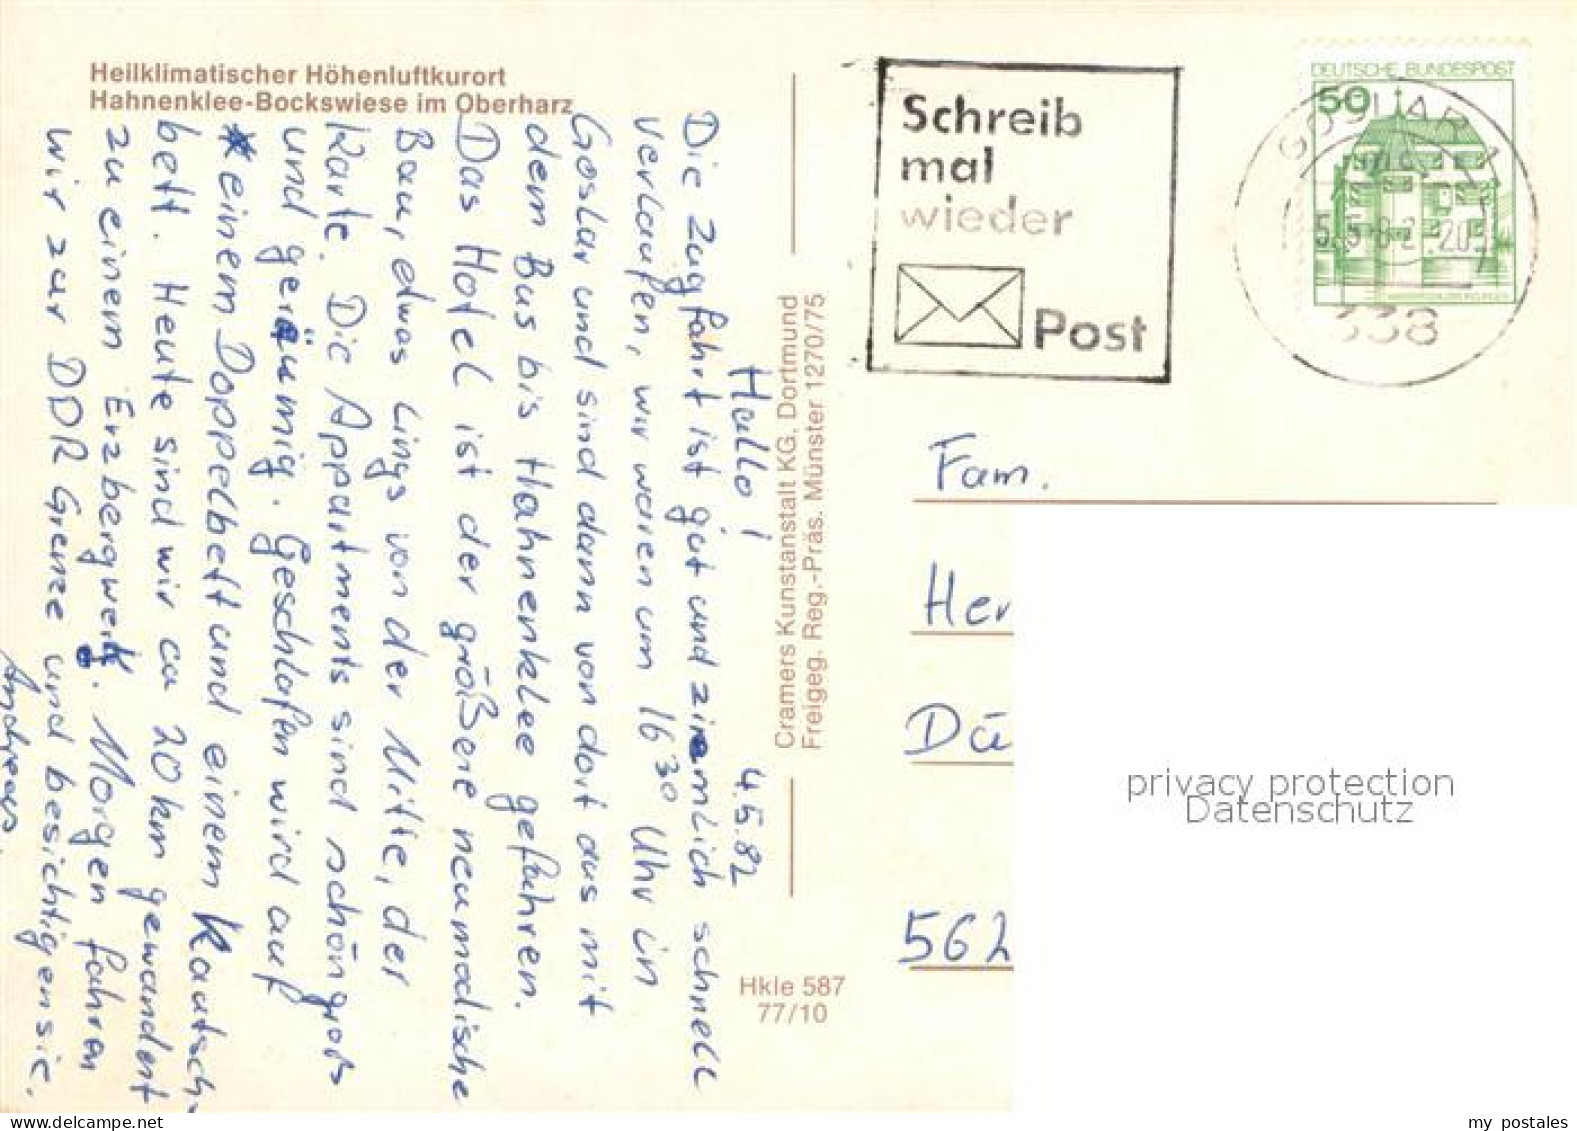 Heilklimatischer Höhenluftkurort
Hahnenklee-Bockswiese im Oberharz
Hallo! 4.5.82
Die Zugfahrt ist gut und ziemlich schnell
verlaufen, wir waren um 16³⁰ Uhr in
Goslar und sind dann von dort aus mit
dem Bus bis Hahnenklee gefahren.
Das Hotel ist der größere neumodische
Bau, etwas Lings von der Mitte, der
Karte. Die Appartments sind schön groß
und geräumig. Geschlafen wird auf
einem Doppelbett und einem Kautsch-
bett. Heute sind wir ca 20 km gewandert
zu einem Erzbergwerk. Morgen fahren
wir zur DDR Grenze und besichtigen sie.
Andreas.
Cramers Kunstanstalt KG, Dortmund
Freigeg. Reg.-Präs. Münster 1270/75
Hkle 587
77/10
Schreib
mal
wieder
Post
DEUTSCHE BUNDESPOST
50
GOSLAR 1
5.5.82.20
338
Fam.
Her
Dü
562
privacy protection
Datenschutz
my postales